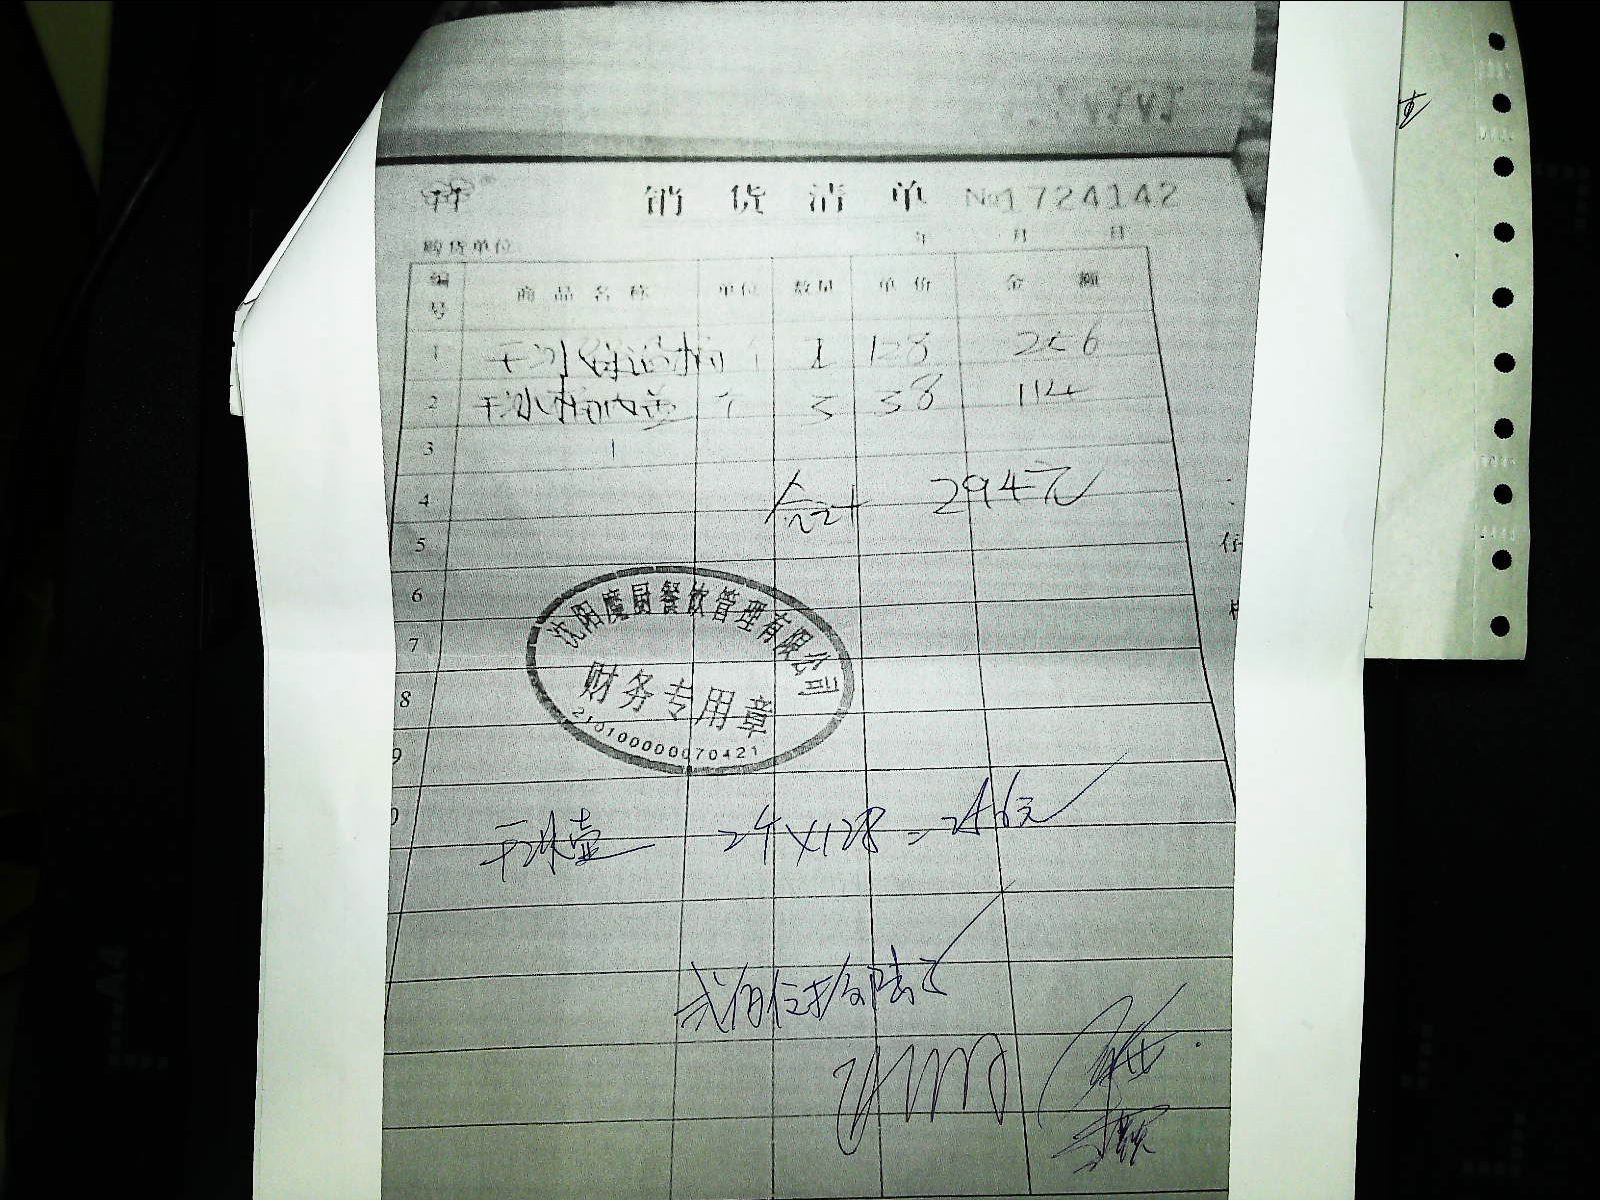 销货清单 No1724142
购货单位 年 月 日
编号 商品名称 单位 数量 单价 金额
1 干冰保温桶 个 2 128 256
2 干冰桶内壶 个 3 38 114
3
4 合计 294元
5
6
7
8
9
沈阳魔厨餐饮管理有限公司
财务专用章
210100000070421
干冰壶 2个×128=256元
贰佰伍拾陆元